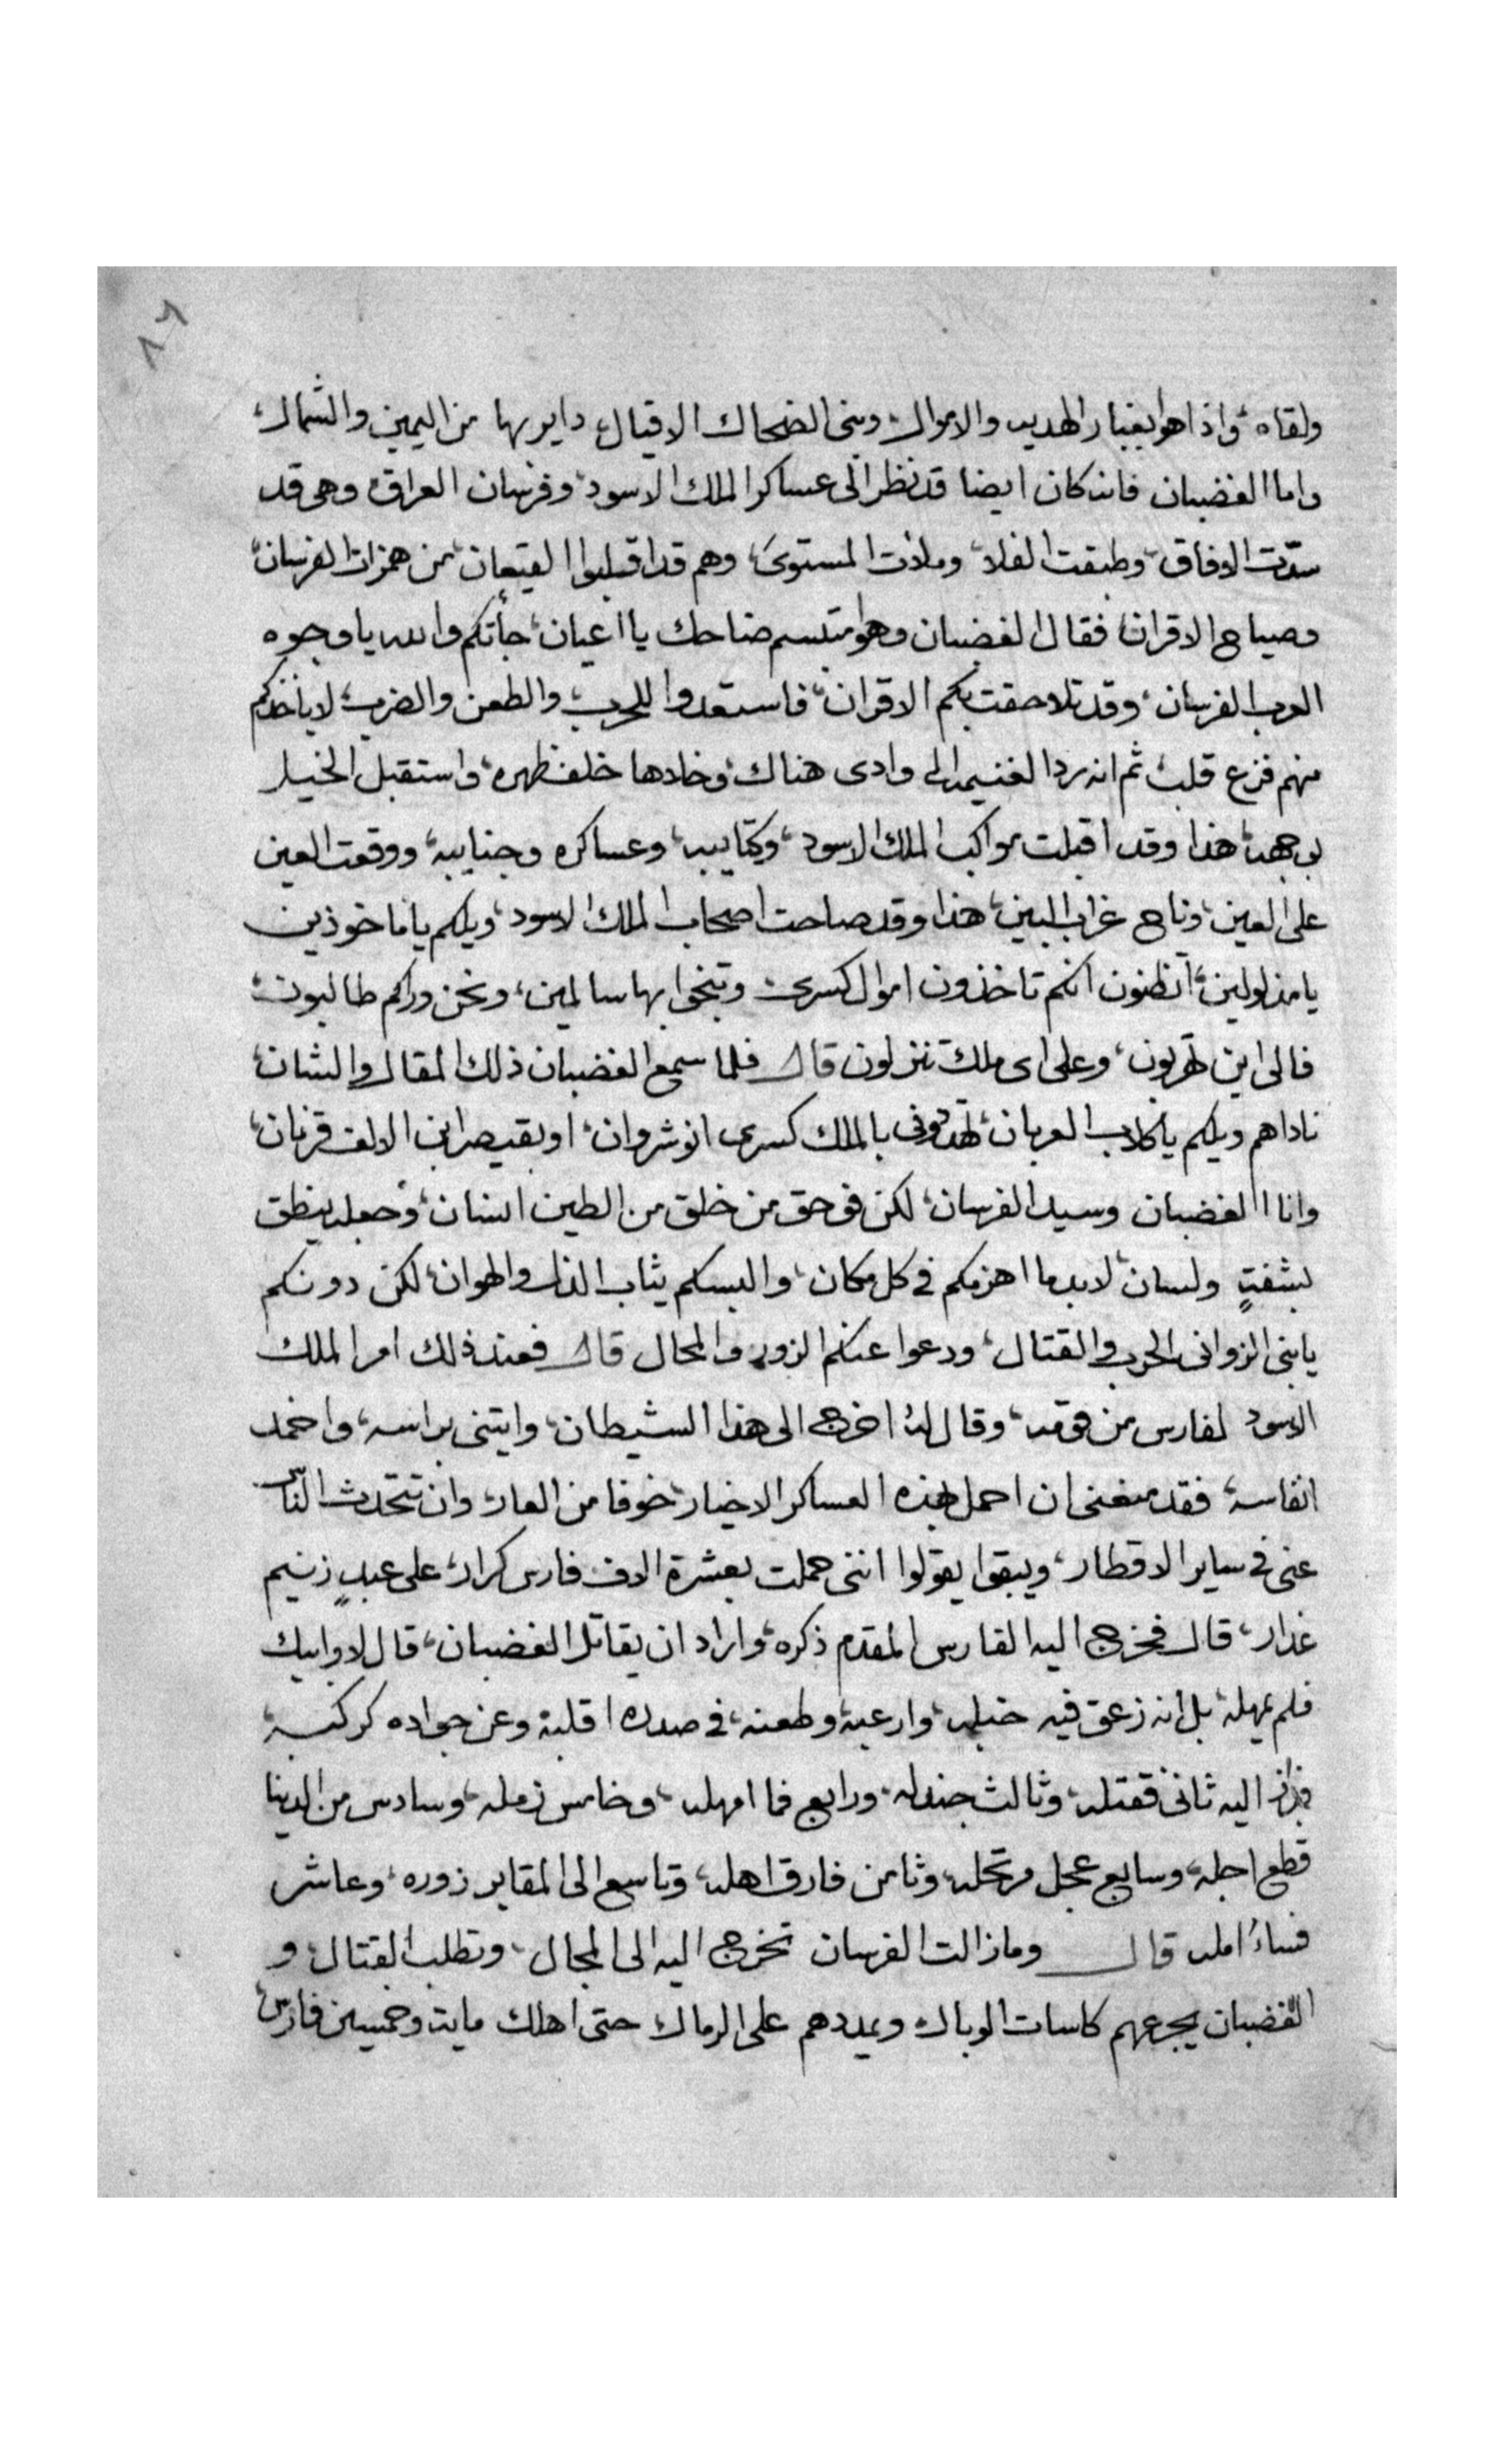 ٨٦
ولقاه، واذا هو بغبار الهديه والاموال، وبنى الضحاك الاقيال، داير بها من اليمين والشمال،
واما الغضبان فانه كان ايضا قد نظر الى عساكر الملك الاسود، وفرسان العراق، وهى قد
سدّت الافاق، وطبقت الفلا، وملأت المستوى، وهم قد اقبلوا القيعان، من همزات الفرسان،
وصياح الاقران، فقال الغضبان وهو متبسم ضاحك يا اعيان، جأتكم والله يا وجوه
العرب الفرسان، وقد تلاحقت بكم الاقران، فاستعدوا للحرب، والطعن والضرب، لا ياخذكم
منهم فزع قلب، ثم انه رد الغنيمه الى وادى هناك، وخلاها خلف ظهره، واستقبل الخيل
بوجهه، هذا وقد اقبلت مواكب الملك الاسود، وكتايبه، وعساكره وجنايبه، ووقعت العين
على العين، وناح غراب البين، هذا وقد صاحت اصحاب الملك الاسود، ويلكم يا ماخوذين
يا مذلولين، أتظنون انكم تاخذون اموال كسرى وتنجوا بها سالمين، ونحن وراكم طالبون،
فالى اين تهربون، وعلى اى ملك تنزلون قال فلما سمع الغضبان ذلك المقال والشان،
ناداهم ويلكم يا كلاب العربان، تهددونى بالملك كسرى انوشروان، او بقيصر ابن الالف قرنان،
وانا الغضبان وسيد الفرسان، لكن فوحق من خلق من الطين انسان، وجعله ينطق
بشفتٍ ولسان، لابد ما اهزمكم فى كل مكان، والبسكم ثياب الذل والهوان، لكن دونكم
يا بنى الزوانى الحرب والقتال، ودعوا عنكم الزور والمحال قال فعند ذلك امر الملك
الاسود لفارس من قومه، وقال له اخرج الى هذا الشيطان، وايتنى براسه، واخمد
انفاسه، فقد منعنى ان احمل بهذه العساكر الاخيار، خوفا من العار، وان تتحدث الناس
عنى فى ساير الاقطار، ويبقوا يقولوا اننى حملت بعشرة الاف فارس كرار، على عبدٍ زنيم
غدار، قال فخرج اليه الفارس المقدم ذكره، واراد ان يقاتل الغضبان، قال لا وابيك
فلم يمهله، بل انه زعق فيه خبله، وارعبه، وطعنه، فى صدره اقلبه، وعن جواده كركبه،
فبرز اليه ثانى فقتله، وثالث جندله، ورابع فما امهله، وخامس زمله، وسادس من الدينا
قطع اجله، وسابع عجل مرتحله، وثامن فارق اهله، وتاسع الى المقابر زوره، وعاشر
فساءُ امله قال وما زالت الفرسان تخرج اليه الى المجال، وتطلب القتال، و
الغضبان يجرعهم كاسات الوبال، ويمددهم على الرمال حتى اهلك مايه وخمسين فارس،